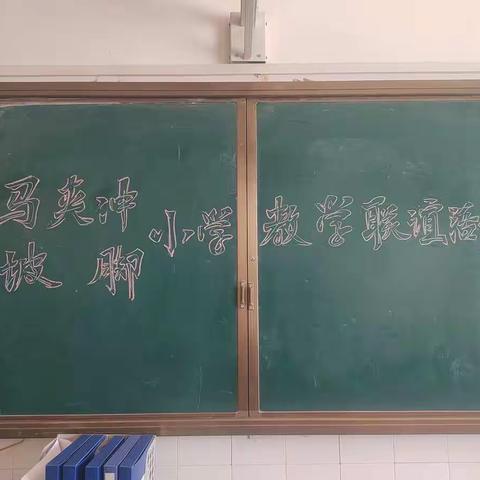 马爽冲
坡脚
小学 数学联谊活